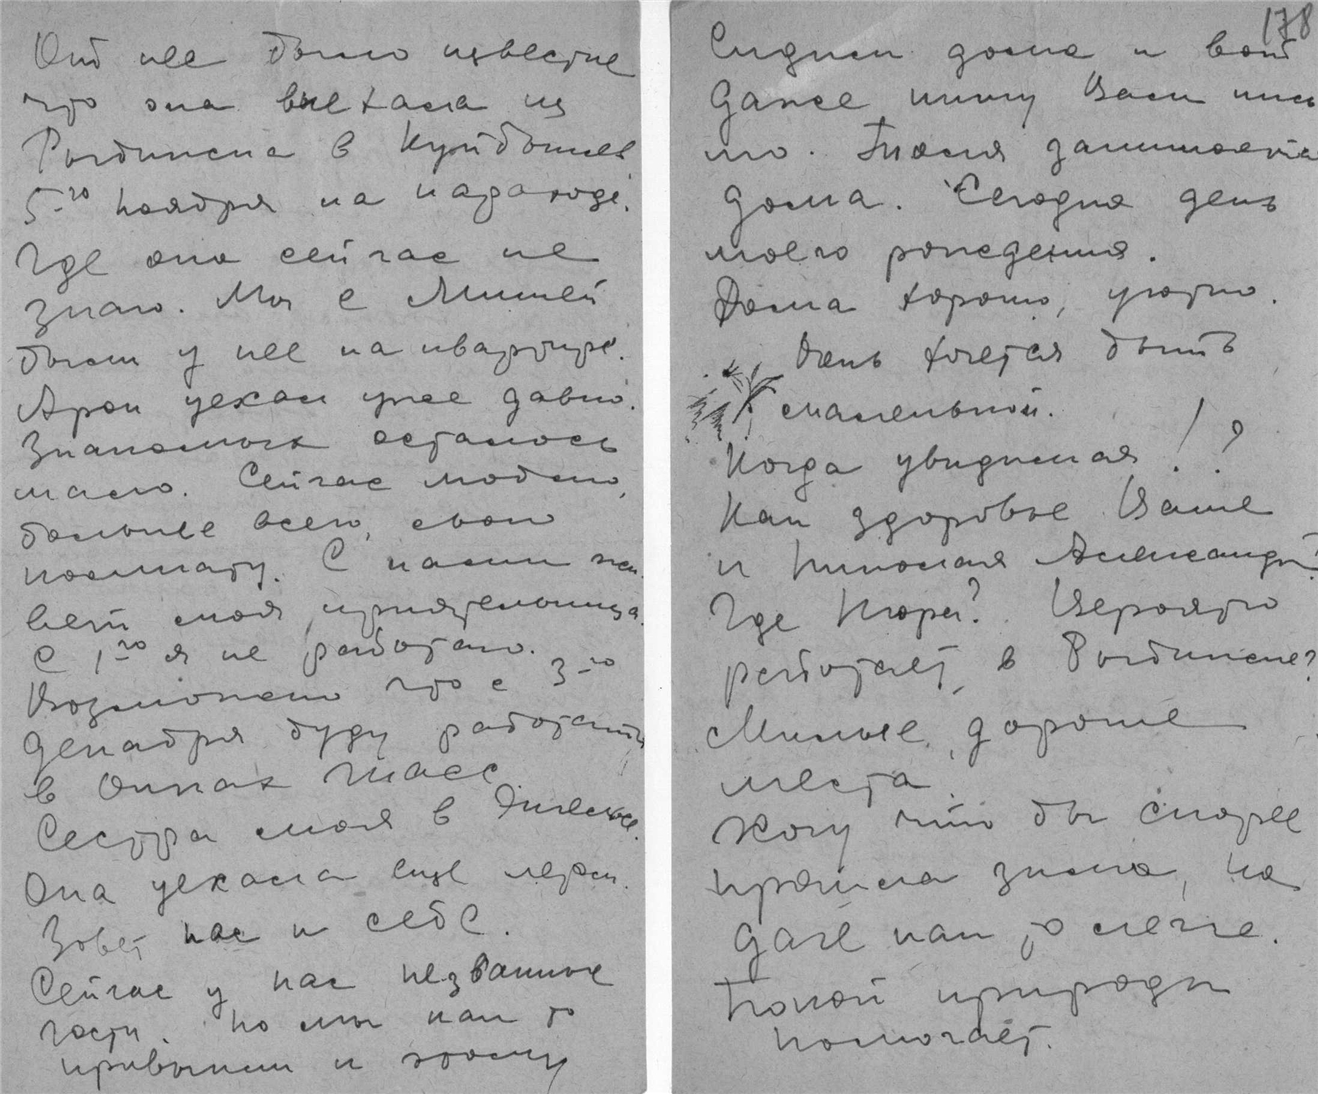 От нее было известие
что она выехала из
Рыбинска в Куйбышев
5-го ноября на пароходе.
Где она сейчас не
знаю. Мы с Мишей
были у нее на квартире.
Арон уехал уже давно.
Знакомых осталось
мало. Сейчас модно,
больше всего, свою
комнату. С нами жи
вет моя приятельница
С 1-го я не работаю.
Возможно что с 3-го
декабря буду работать
в Окнах Тасс
Сестра моя в Ижевске.
Она уехала еще летом.
Зовет нас к себе.
Сейчас у нас незванные
гости. Но мы как то
привыкли к этому
178
Сидим дома и вот
даже пишу Вам пись
мо. Таля занимается
дома. Сегодня день
моего рождения.
Дома хорошо, уютно.
Очень хочется быть
маленькой.
Когда увидимся!?
Как здоровье Ваше
и Николая Александр.?
Где Нюра? Вероятно
работает в Рыбинске?
Милые, дорогие
места.
Хочу что бы скорее
прошла зима, на
даче как то легче.
Покой природы
помогает.